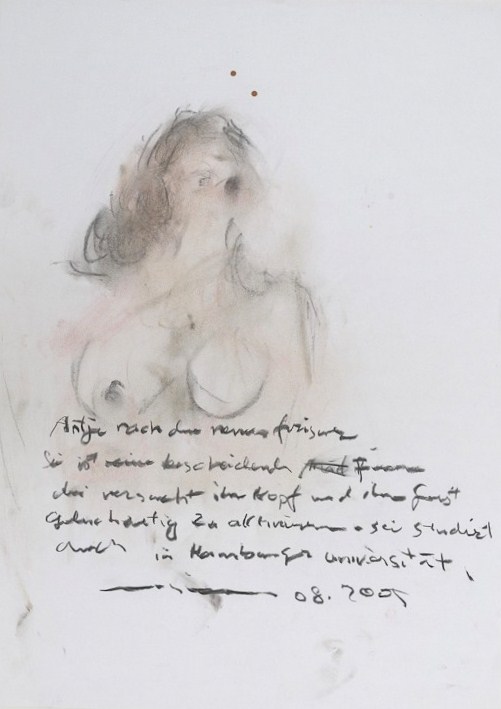 Antje nach dem neuen frisuer
Sie ist eine bescheidende Frau
die versucht ihr Kopf und ihr
zu aktivieren. sei studiert
auch in Hamburger universität,
08.2005